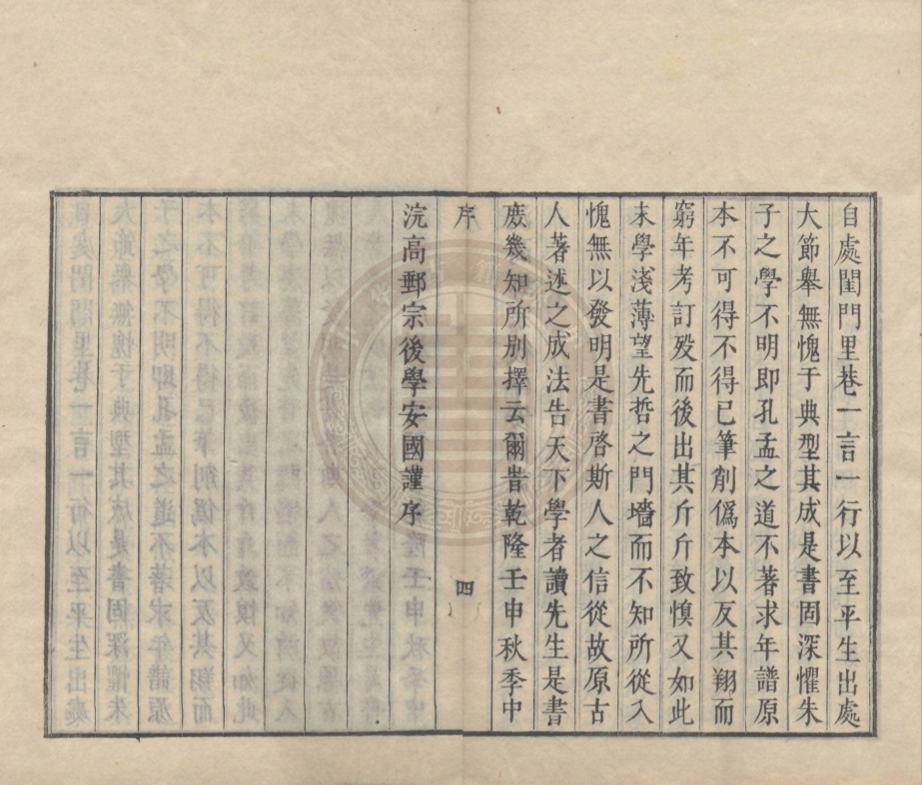 自處閨門里巷一言一行以至平生出處
大節舉無愧于典型其成是書固深懼朱
子之學不明即孔孟之道不著求年譜原
本不可得不得已筆削僞本以反其朔而
窮年考訂歿而後出其斤斤致愼又如此
末學淺薄望先哲之門墻而不知所從入
愧無以發明是書啓斯人之信從故原古
人著述之成法告天下學者讀先生是書
庶幾知所別擇云爾旹乾隆壬申秋季中
序
四
浣高郵宗後學安國謹序